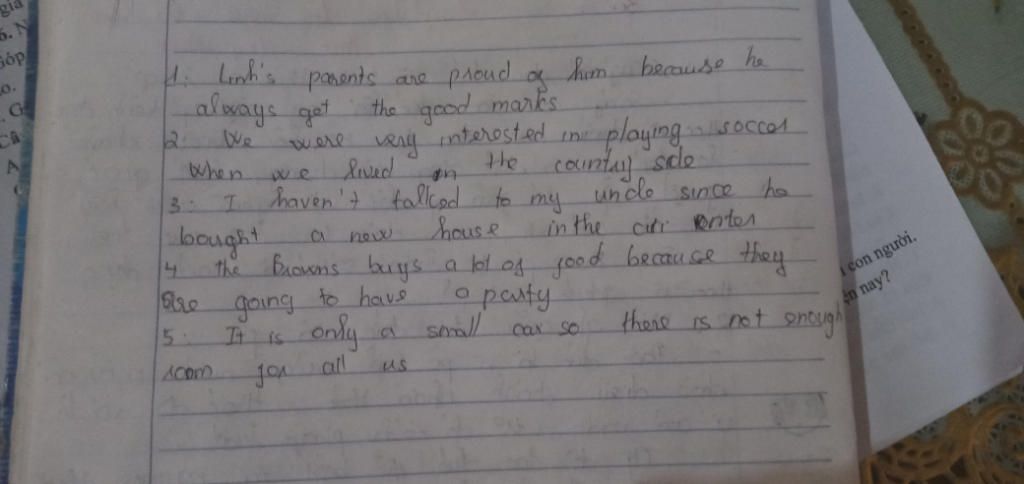 gia
6. N
góp
o.
. G
câ
A
1: Linh's parents are proud of him because he
always get the good marks
2: We were very interested in playing soccer
when we lived on the country side
3: I haven't talked to my uncle since he
bought a new house in the citi center
4 the Browns buys a lot of food because they
are going to have a party
5: It is only a small car so there is not enough
room for all us
con người.
nay?